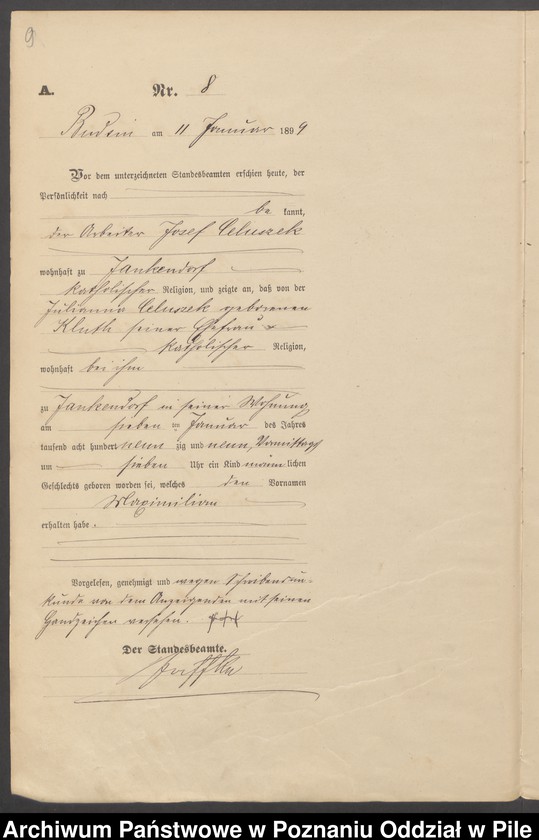 9
A. Nr. 8
Budsin am 11 Januar 1899
Vor dem unterzeichneten Standesbeamten erschien heute, der
Persönlichkeit nach
be kannt,
der Arbeiter Josef Celuszek
wohnhaft zu Jankendorf
katholischer Religion, und zeigte an, daß von der
Julianna Celuszek geborenen
Kluth seiner Ehefrau
katholischer Religion,
wohnhaft bei ihm
zu Jankendorf in seiner Wohnung
am sieben ten Januar des Jahres
tausend acht hundert neun zig und neun, Vormittags
um sieben Uhr ein Kind männ lichen
Geschlechts geboren worden sei, welches den Vornamen
Maximilian
erhalten habe.
Vorgelesen, genehmigt und wegen Schreibensun-
kunde von dem Anzeigenden mit seinem
Handzeichen versehen. +++
Der Standesbeamte.
Archiwum Państwowe w Poznaniu Oddział w Pile